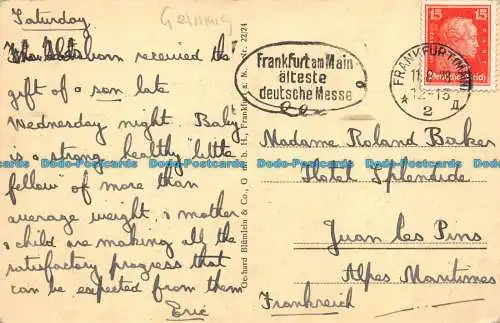 Saturday
Germany
born received the
gift of a son late
Wednesday night. Baby
is a strong, healthy little
fellow of more than
average weight, & mother
& child are making all the
satisfactory progress that
can be expected from them
Eric
Gerhard Blümlein & Co., G. m. b. H., Frankfurt a. M. Nr. 22/24
Frankfurt am Main
älteste
deutsche Messe
15 15
Deutsches Reich
FRANKFURT (MAIN)
2
Madame Roland Baker
Hotel Splendide
Juan les Pins
Alpes Maritimes
Frankreich
Dodo-Postcards Dodo-Postcards Dodo-Postcards Dodo-Postcards